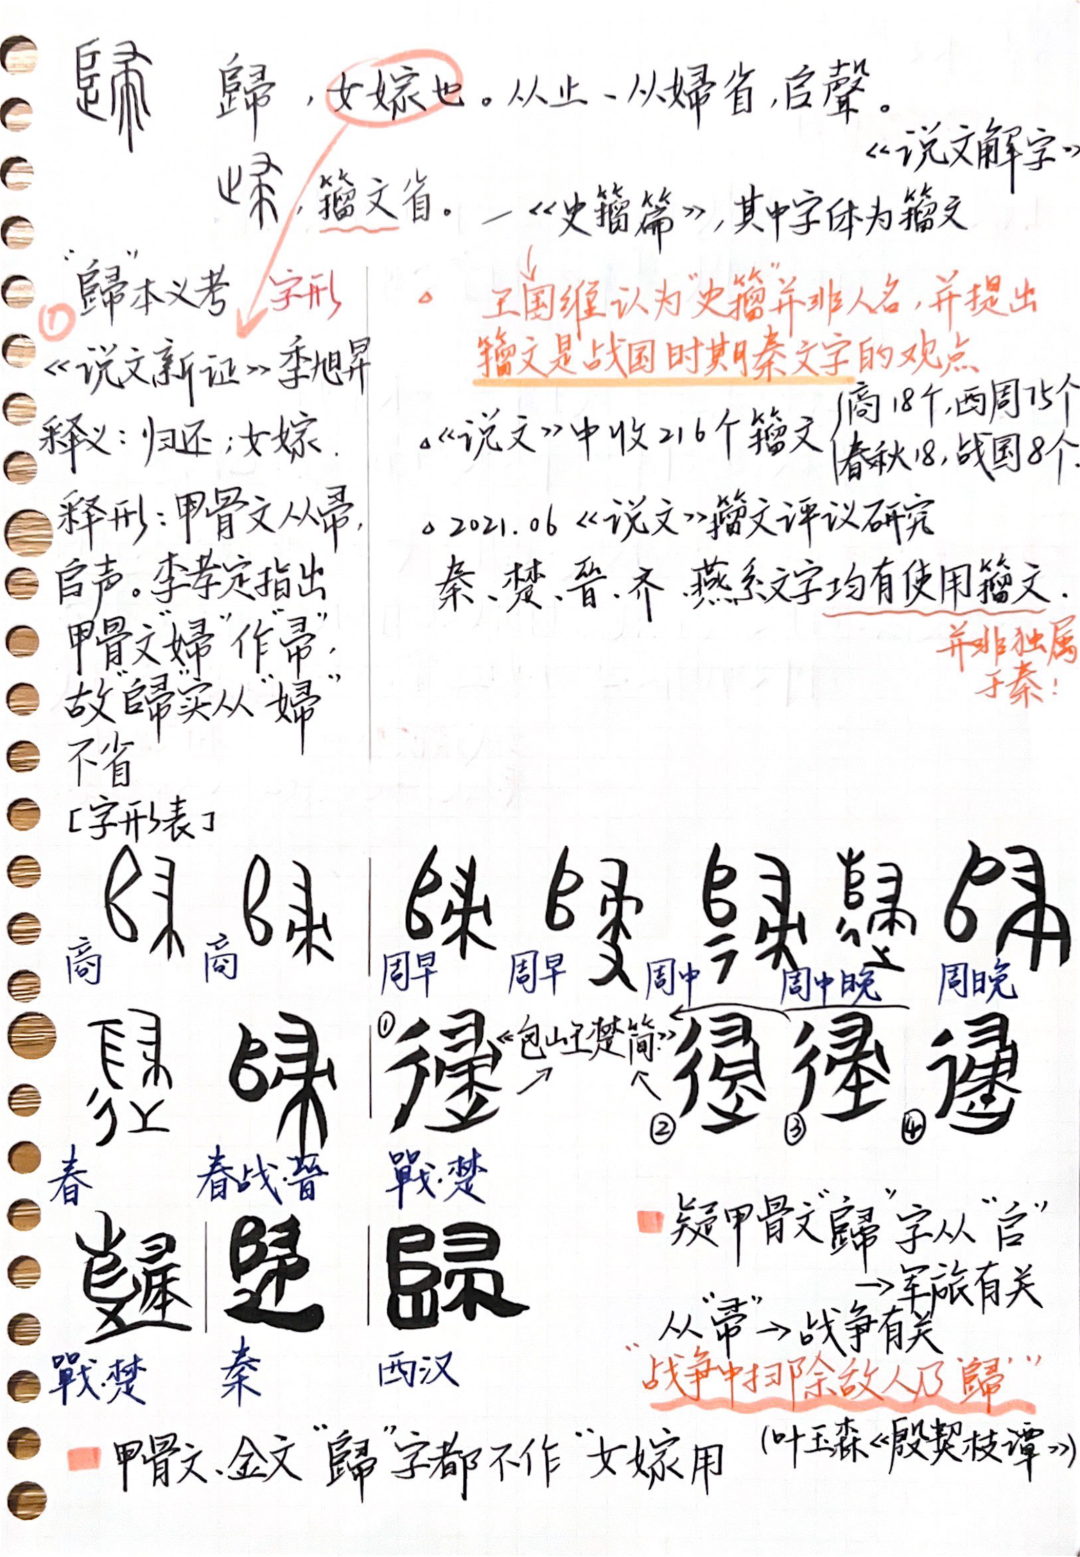 歸，女嫁也。从止、从婦省，𠂤聲。
《说文解字》
籀文省。—《史籀篇》，其中字体为籀文
"歸"本义考 字形
①
《说文新证》季旭昇
释义：归还；女嫁．
释形：甲骨文从帚，
𠂤声。李孝定指出
甲骨文"婦"作"帚"，
故"歸"实从"婦"
不省
[字形表]
王国维认为"史籀"并非人名，并提出
籀文是战国时期秦文字的观点
《说文》中收216个籀文
商18个，西周75个
春秋18，战国8个．
2021.06《说文》籀文评议研究
秦、楚、晋、齐、燕系文字均有使用籀文．
并非独属
于秦！
商 商 周早 周早 周中 周中晚 周晚
① 《包山楚简》 ② ③ ④
春 春战·晉 戰·楚
戰·楚 秦 西汉
疑甲骨文"歸"字从"𠂤"
→军旅有关
从"帚"→战争有关
"战争中扫除敌人乃'歸'"
(叶玉森《殷契枝谭》)
甲骨文、金文"歸"字都不作"女嫁用